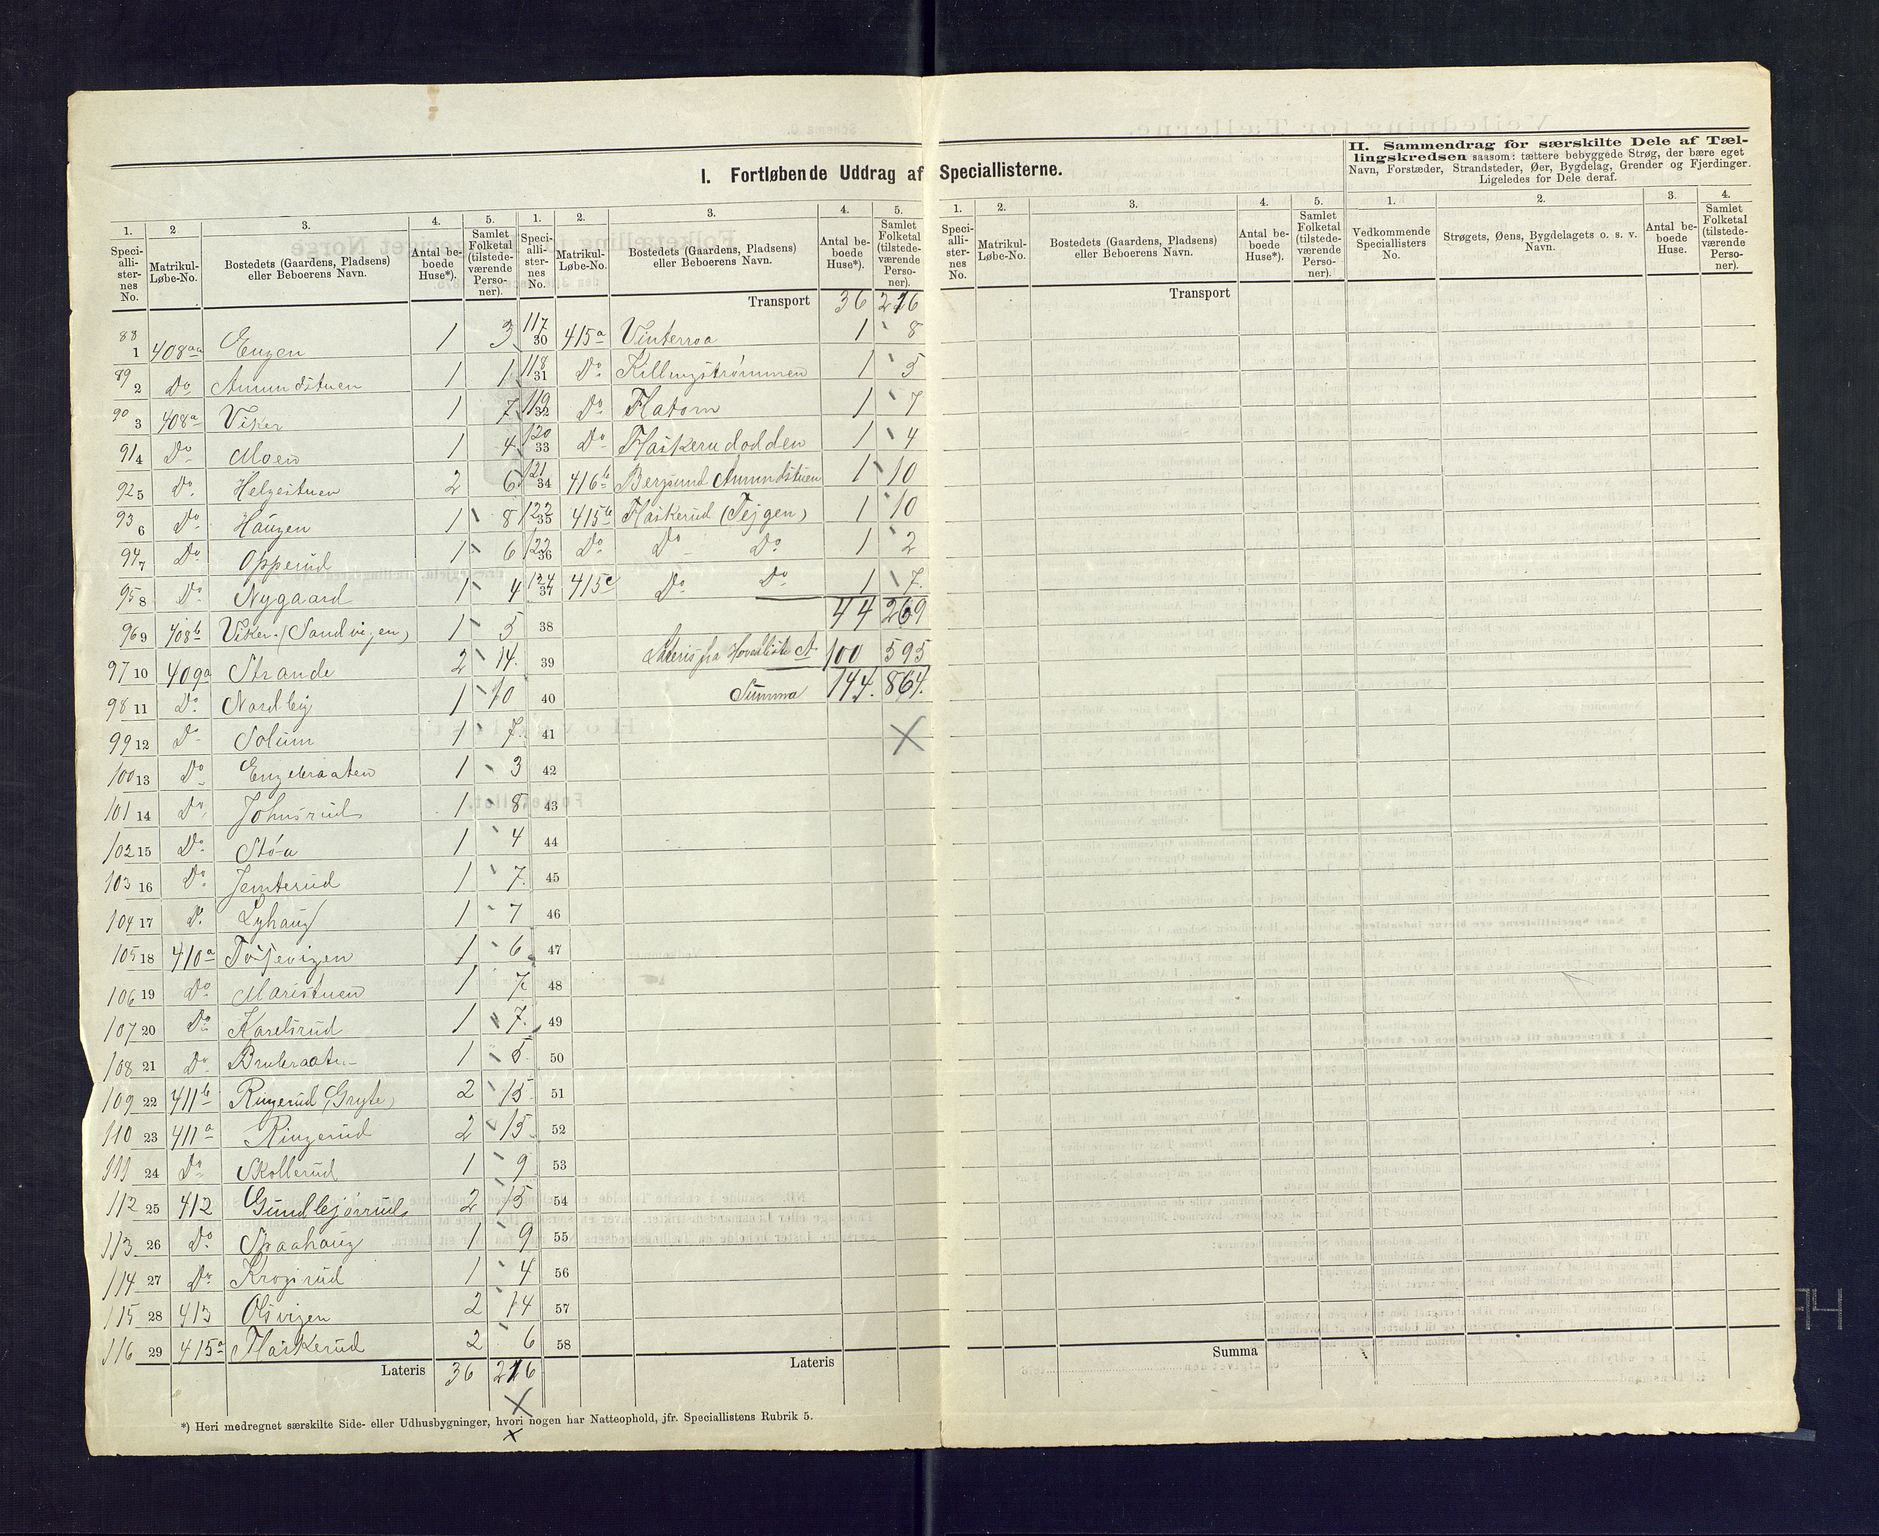 I. Fortløbende Uddrag af Speciallisterne.
II. Sammendrag for særskilte Dele af Tæl-
lingskredsen saasom: tættere bebyggede Strøg, der bære eget
Navn, Forstæder, Strandsteder, Øer, Bygdelag, Grender og Fjerdinger.
Ligeledes for Dele deraf.
1. 2 3. 4. 5. 1. 2. 3. 4. 5. 1. 2. 3. 4. 5. 1. 2. 3. 4.
Speci-alli-ster-nes No. Matrikul-Løbe-No. Bostedets (Gaardens, Pladsens) eller Beboerens Navn. Antal be-boede Huse*). Samlet Folketal (tilstede-værende Perso-ner).
Speci-alli-ster-nes No. Matrikul-Løbe-No. Bostedets (Gaardens, Pladsens) eller Beboerens Navn. Antal be-boede Huse*). Samlet Folketal (tilstede-værende Perso-ner).
Speci-alli-ster-nes No. Matrikul-Løbe-No. Bostedets (Gaardens, Pladsens) eller Beboerens Navn. Antal be-boede Huse*). Samlet Folketal (tilstede-værende Perso-ner).
Vedkommende Speciallisters No. Strøgets, Øens, Bygdelagets o. s. v. Navn. Antal be-boede Huse. Samlet Folketal (tilstede-værende Perso-ner).
88 1 408aa Engen 1 3
89 2 Do Amundstuen 1 1
90 3 408a Viker 1 7
91 4 Do Moen 1 4
92 5 Do Helgestuen 2 6
93 6 Do Haugen 1 8
94 7 Do Opperud 1 6
95 8 Do Nygaard 1 4
96 9 408b Viker (Sandvigen) 1 5
97 10 409a Strande 2 14
98 11 Do Nordby 1 10
99 12 Do Solum 1 7
100 13 Do Engebraaten 1 3
101 14 Do Johnsrud 1 8
102 15 Do Støa 1 4
103 16 Do Jemterud 1 7
104 17 Do Lyhaug 1 7
105 18 410a Tosevigen 1 6
106 19 Do Maristuen 1 7
107 20 Do Karelsrud 1 7
108 21 Do Braateraaten 1 5
109 22 411b Ringerud (Gryte) 2 15
110 23 411a Ringerud 2 15
111 24 Do Skollerud 1 9
112 25 412 Gundbjørrud 2 15
113 26 Do Spaahaug 1 9
114 27 Do Krogsrud 1 4
115 28 413 Olsvigen 2 14
116 29 415a Haskerud 2 6
Lateris 36 216
Transport 36 216
117 30 415a Vinterroa 1 8
118 31 Do Killingstrømmen 1 5
119 32 Do Flatom 1 7
120 33 Do Haskerudodden 1 4
121 34 416b Bergsund Amundstuen 1 10
122 35 415b Haskerud (Tejgen) 1 10
122 36 Do Do Do 1 2
124 37 415c Do Do 1 7
38 44 269
39 Lateris fra Hovedliste A 100 595
40 Summa 144. 864.
41
42
43
44
45
46
47
48
49
50
51
52
53
54
55
56
57
58
Lateris
Transport
Summa
*) Heri medregnet særskilte Side- eller Udhusbygninger, hvori nogen har Natteophold, jfr. Speciallistens Rubrik 5.